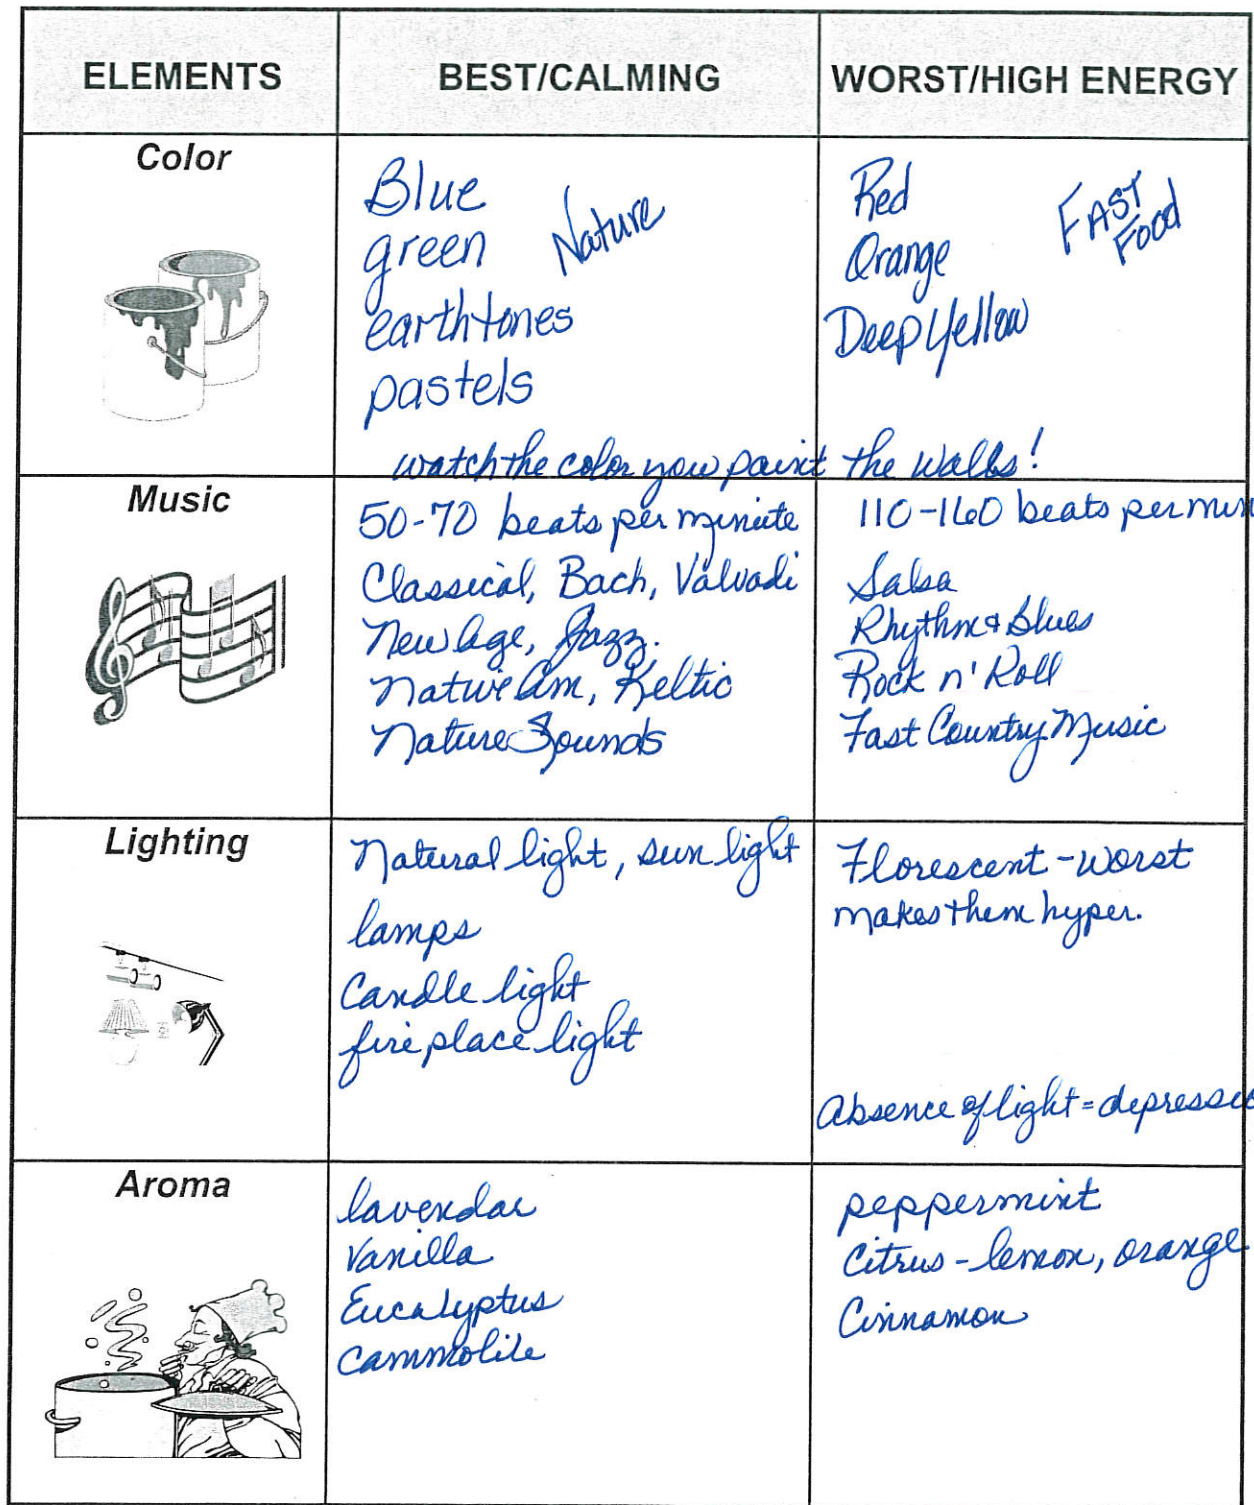 ELEMENTS BEST/CALMING WORST/HIGH ENERGY
Color
Blue
green
earthtones
pastels
Nature
Red
Orange
Deep Yellow
FAST
FOOD
watch the color you paint the walls!
Music
50-70 beats per minute
Classical, Bach, Valvadi
New Age, Jazz.
Native Am, Keltic
Nature Sounds
110-160 beats per min
Salsa
Rhythm & Blues
Rock n' Roll
Fast Country Music
Lighting
Natural light, sun light
lamps
Candle light
fire place light
Florescent - worst
makes them hyper.
Absence of light = depressio
Aroma
lavendar
Vanilla
Eucalyptus
Cammolile
peppermint
Citrus - lemon, orange
Cinnamon